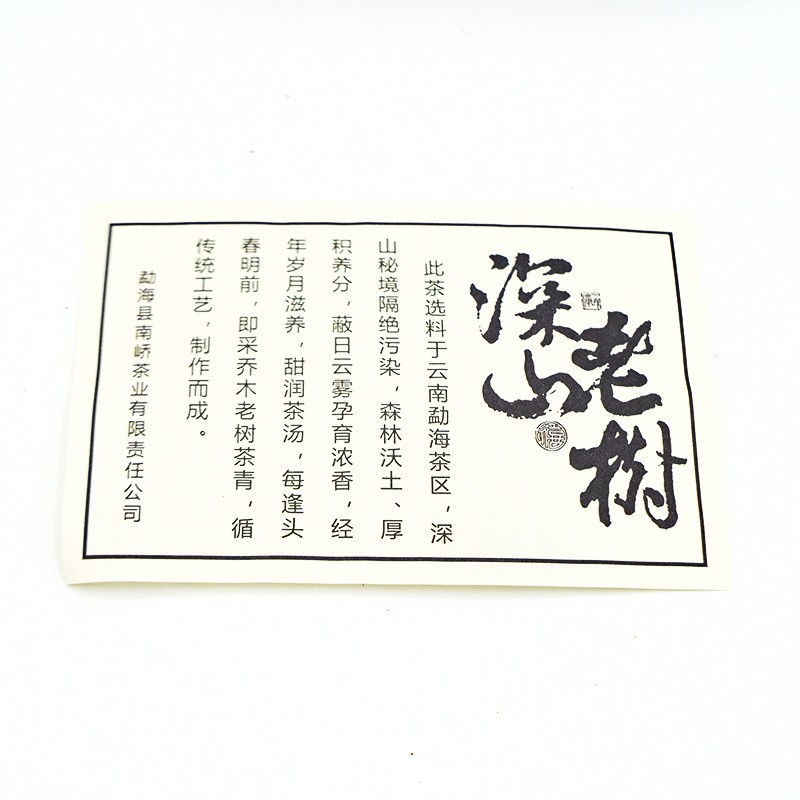 深山
老树
此茶选料于云南勐海茶区，深
山秘境隔绝污染，森林沃土、厚
积养分，蔽日云雾孕育浓香，经
年岁月滋养，甜润茶汤，每逢头
春明前，即采乔木老树茶青，循
传统工艺，制作而成。
勐海县南峤茶业有限责任公司